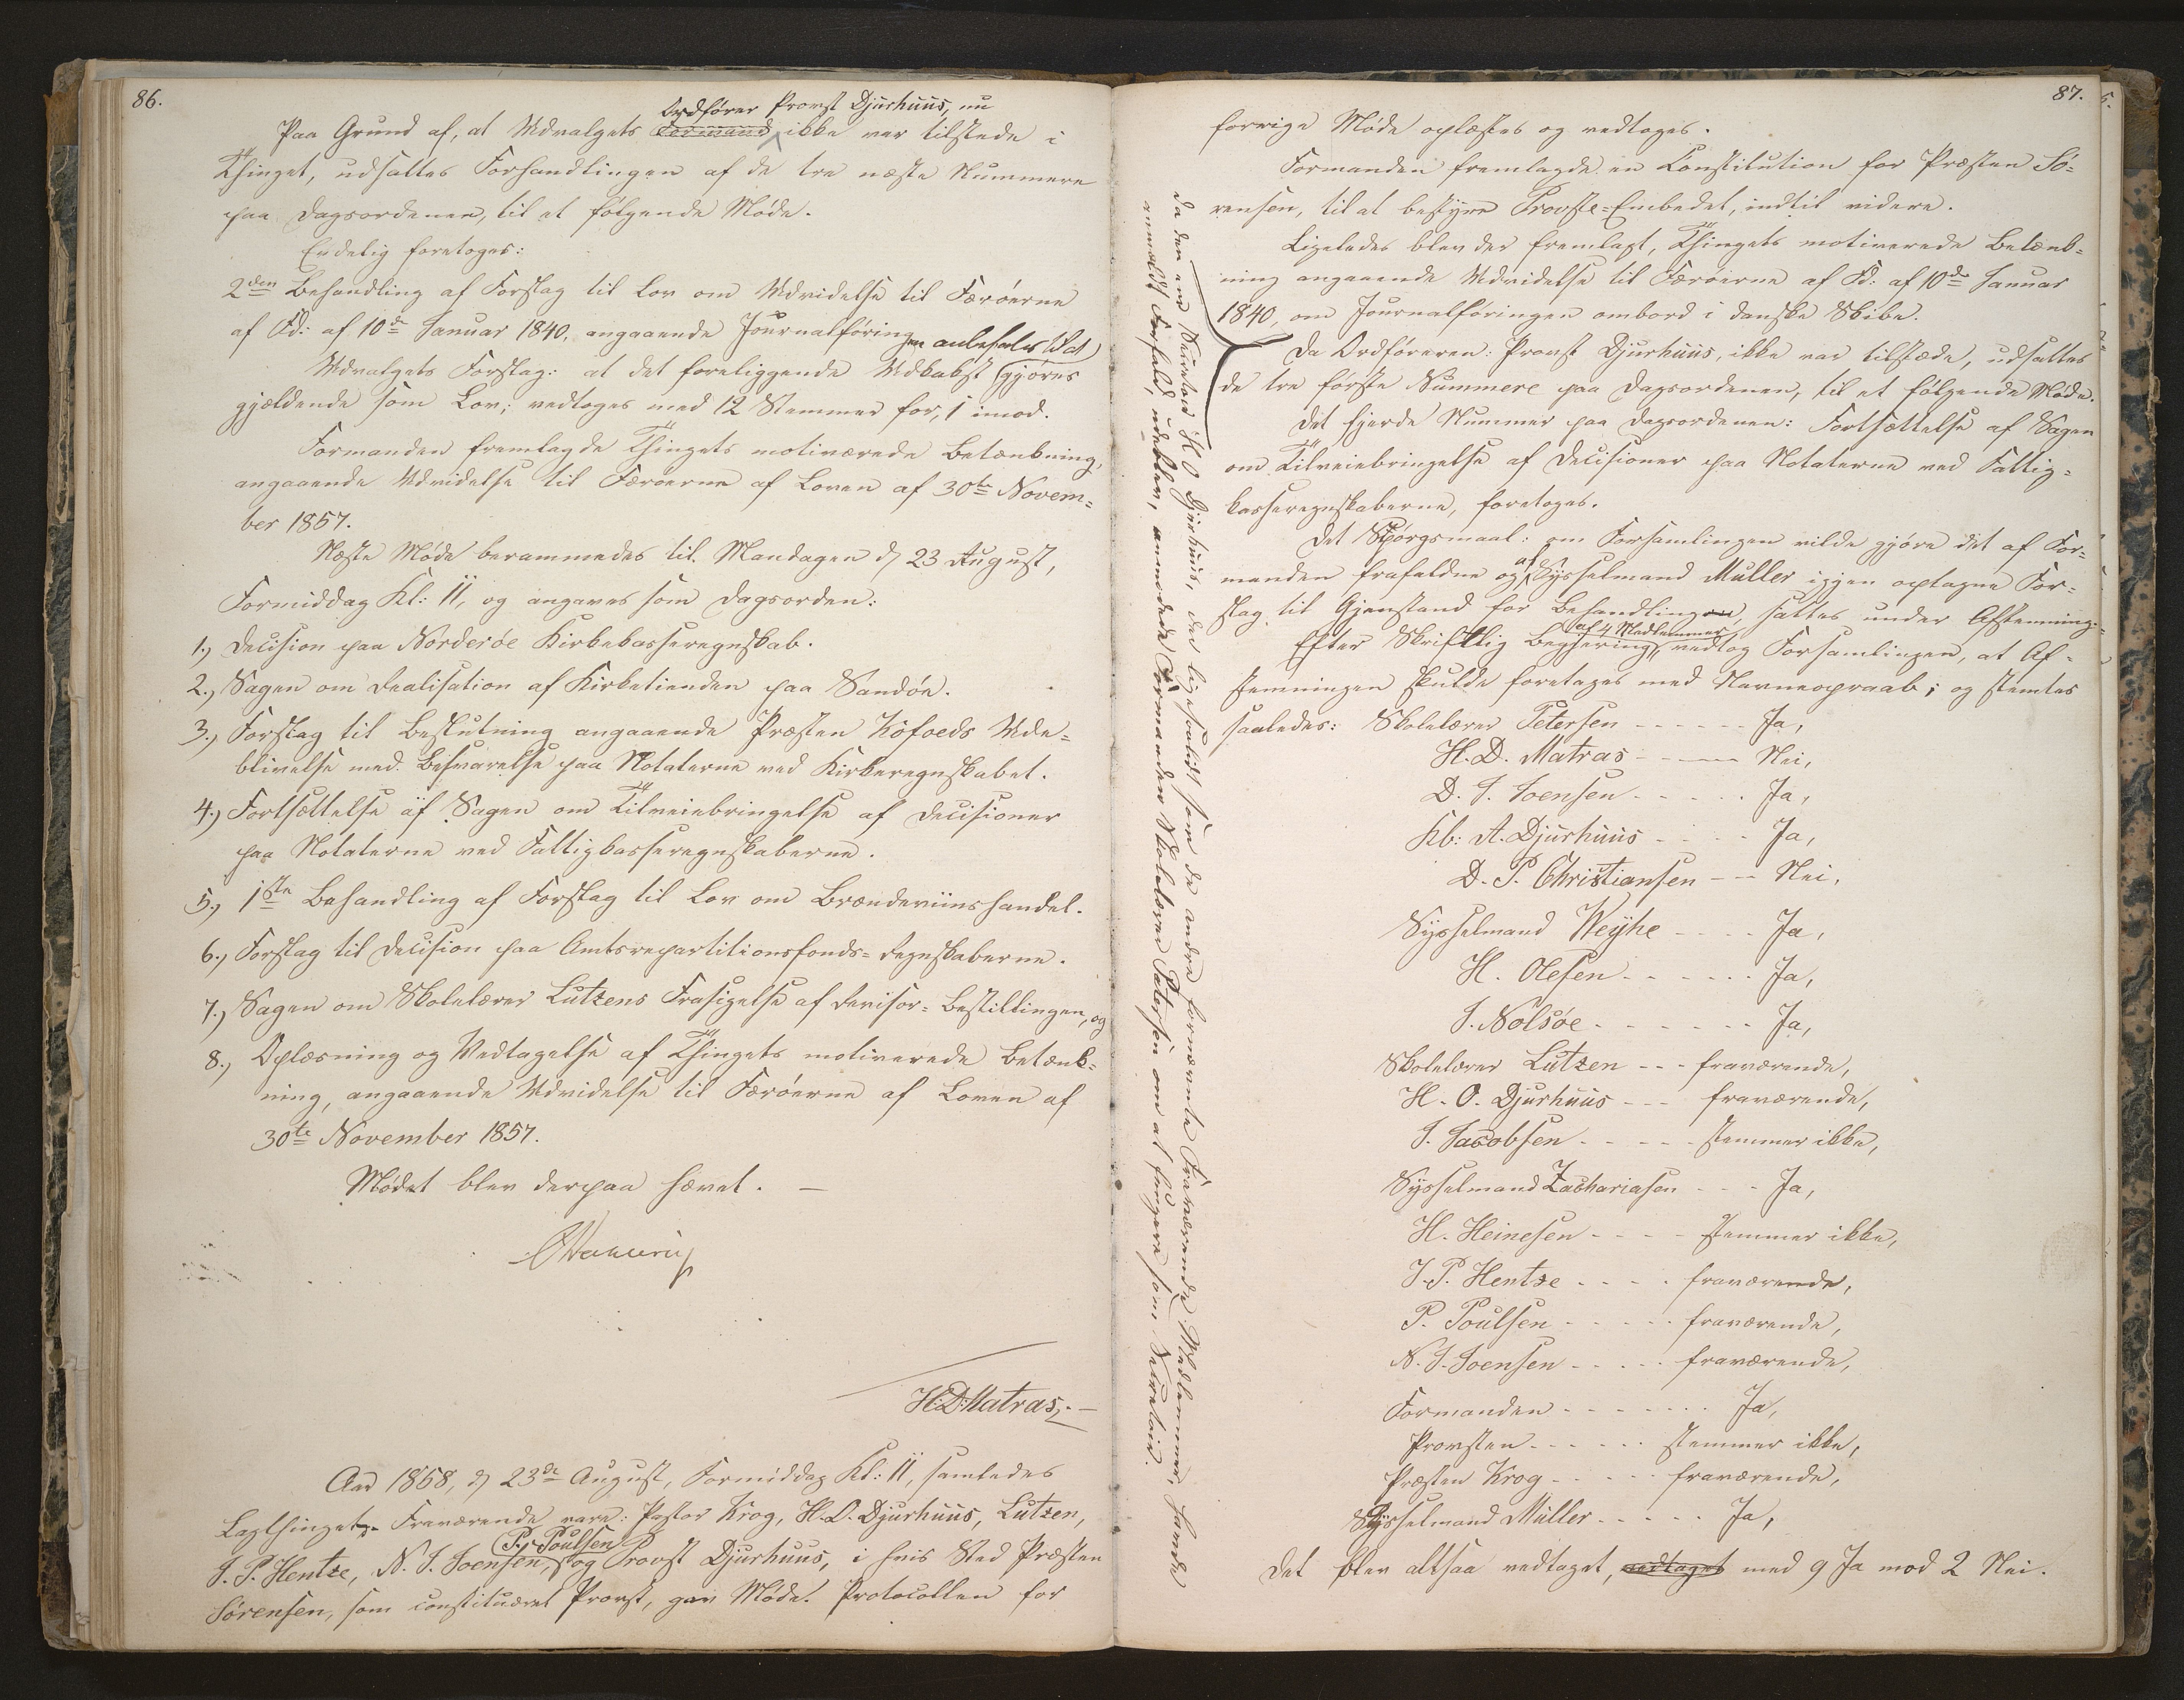 86.
Ordfører Provst Djurhuus, nu
Paa Grund af, at Udvalgets Formand ikke var tilstede i
Thinget, udsattes Forhandlingen af de tre næste Nummere
paa Dagsordenen, til et følgende Møde.
Endelig foretoges:
2den Behandling af Forslag til Lov om Udvidelse til Færøerne
af Fd: af 10de Januar 1840, angaaende Journalføring
Udvalgets Forslag: at det foreliggende Udkast gjøres
gjældende som Lov; vedtoges med 12 Stemmer for, 1 imod.
Formanden fremlagde Thingets motiverede Betænkning,
angaaende Udvidelse til Færøerne af Loven af 30te Novem-
ber 1857.
Næste Møde berammedes til Mandagen d. 23 August,
Formiddag Kl: 11, og angaves som Dagsorden:
1.) Decision paa Norderøe Kirkekasseregnskab.
2.) Sagen om Realisation af Kirketienden paa Sandøe.
3.) Forslag til Beslutning angaaende Præsten Kofoeds Ude-
blivelse med Besvarelse paa Notaterne ved Kirkeregnskabet.
4.) Fortsættelse af Sagen om Tilveiebringelse af Decisioner
paa Notaterne ved Fattigkasseregnskaberne.
5.) 1ste Behandling af Forslag til Lov om Brændeviinshandel.
6.) Forslag til Decision paa Amtsrepartitionsfonds-Regnskaberne.
7.) Sagen om Skolelærer Lützens Frasigelse af Revisor-Bestillingen, og
8.) Oplæsning og Vedtagelse af Thingets motiverede Betænk-
ning, angaaende Udvidelse til Færøerne af Loven af
30te November 1857.
Mødet blev derpaa hævet. —
H.D. Matras. —
Aar 1868, d. 23de August, Formiddag Kl: 11, samledes
Lagthinget. Fraværende vare: Pastor Krog, H.O. Djurhuus, Lützen,
P. Poulsen
J.P. Hentze, N.J. Joensen, og Provst Djurhuus, i hvis Sted Præsten
Sørensen, som constitueret Provst, gav Møde. Protocollen for
87.
forrige Møde oplæstes og vedtoges.
Formanden fremlagde en Constitution for Præsten Sö-
rensen, til at bestyre Provste-Embedet, indtil videre.
Ligeledes blev der fremlagt, Thingets motiverede Betænk-
ning angaaende Udvidelse til Færøerne af Fd: af 10de Januar
1840, om Journalføringen ombord i danske Skibe.
Da Ordføreren: Provst Djurhuus, ikke var tilstæde, udsattes
de tre første Nummere paa Dagsordenen, til et følgende Møde.
Det fjerde Nummer paa Dagsordenen: Fortsættelse af Sagen
om Tilveiebringelse af Decisioner paa Notaterne ved Fattig-
kasseregnskaberne, foretoges.
Det Spørgsmaal: om Forsamlingen vilde gjøre det af For-
manden frafaldne og af Sysselmand Müller igjen optagne For-
slag til Gjenstand for Behandling, sattes under Afstemning.
af 4 Medlemmer
Efter Skriftlig Begjering, vedtog Forsamlingen, at Af-
stemningen skulde foretages med Navneopraab; og stemtes
saaledes: Skolelærer Petersen ------ Ja,
H.D. Matras ---- Nei,
D.J. Joensen ----- Ja,
Kb: A. Djurhuus ---- Ja,
D.P. Christiansen -- Nei,
Sysselmand Weyhe ---- Ja,
H. Olesen ------ Ja,
J. Nolsøe ------ Ja,
Skolelærer Lützen --- fraværende,
H.O. Djurhuus --- fraværende,
J. Jacobsen ----- stemmer ikke,
Sysselmand Zachariasen --- Ja,
H. Heinesen ---- stemmer ikke,
J.P. Hentze ---- fraværende,
P. Poulsen ----- fraværende,
N.J. Joensen ----- fraværende,
Formanden ------- Ja,
Provsten ------ stemmer ikke,
Præsten Krog ----- fraværende,
Sysselmand Müller ----- Ja,
Det blev altsaa vedtaget, vedtaget med 9 Ja mod 2 Nei.
Da den ene Secretair H O Djurhuus, der ligesaalidt som de andre fornævnte Fraværende Medlemmer, havde
anmeldt Forfald, udeblev, anmodede Formanden Skolelærer Petersen om at fungere som Secretair.